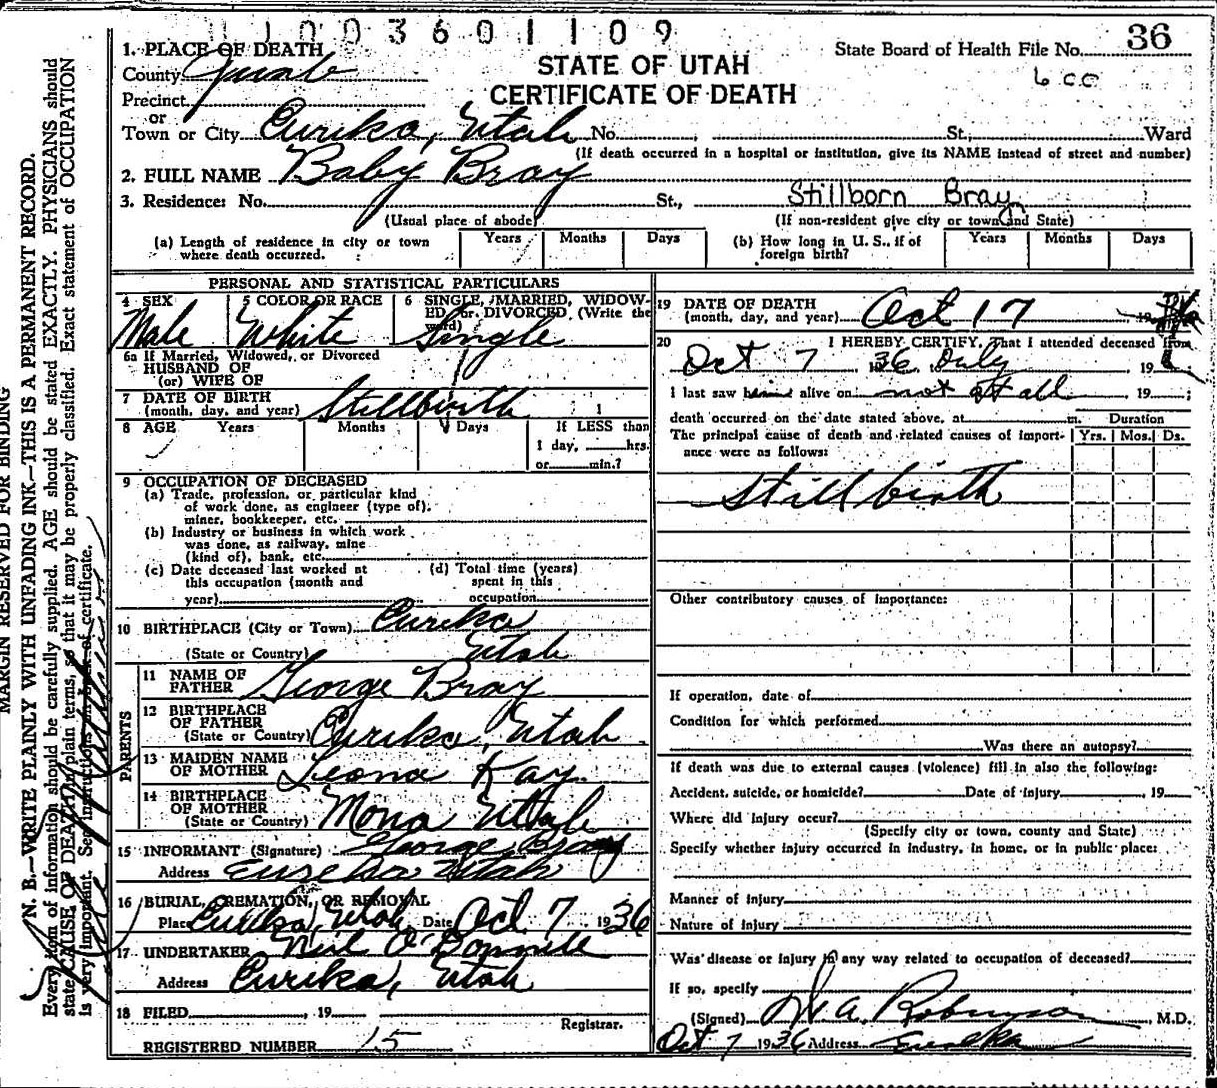 1 0 0 3 6 0 1 1 0 9
36
1. PLACE OF DEATH
State Board of Health File No.
County Juab
STATE OF UTAH
600
Precinct
CERTIFICATE OF DEATH
or
Town or City Eureka, Utah No. , St., Ward
(If death occurred in a hospital or institution, give its NAME instead of street and number)
2. FULL NAME Baby Bray
3. Residence: No. St., Stillborn Bray
(Usual place of abode) (If non-resident give city or town and State)
(a) Length of residence in city or town where death occurred. Years Months Days
(b) How long in U. S., if of foreign birth? Years Months Days
PERSONAL AND STATISTICAL PARTICULARS
4 SEX Male
5 COLOR OR RACE White
6 SINGLE, MARRIED, WIDOW-
ED, or DIVORCED, (Write the
word) Single
6a If Married, Widowed, or Divorced
HUSBAND OF
(or) WIFE OF
7 DATE OF BIRTH
(month, day, and year) Stillbirth
8 AGE Years Months Days If LESS than
1 day, hrs.
or min.?
9 OCCUPATION OF DECEASED
(a) Trade, profession, or particular kind
of work done, as engineer (type of),
miner, bookkeeper, etc.
(b) Industry or business in which work
was done, as railway, mine
(kind of), bank, etc.
(c) Date deceased last worked at
this occupation (month and
year)
(d) Total time (years)
spent in this
occupation
10 BIRTHPLACE (City or Town) Eureka
(State or Country) Utah
PARENTS
11 NAME OF
FATHER George Bray
12 BIRTHPLACE
OF FATHER
(State or Country) Eureka, Utah
13 MAIDEN NAME
OF MOTHER Leona Kay
14 BIRTHPLACE
OF MOTHER
(State or Country) Mona Utah
15 INFORMANT (Signature) George Bray
Address Eureka Utah
16 BURIAL, CREMATION, OR REMOVAL
Place Eureka, Utah Date Oct 7 1936
17 UNDERTAKER Neil O'Donnell
Address Eureka, Utah
18 FILED , 19
Registrar.
REGISTERED NUMBER 15
19 DATE OF DEATH
(month, day, and year) Oct 17 , 19
20 I HEREBY CERTIFY, That I attended deceased from
Oct 7 36 only 19
I last saw him alive on not at all 19 ;
death occurred on the date stated above, at m.
The principal cause of death and related causes of import-
ance were as follows:
Duration
Yrs. Mos. Ds.
Stillbirth
Other contributory causes of importance:
If operation, date of
Condition for which performed
Was there an autopsy?
If death was due to external causes (violence) fill in also the following:
Accident, suicide, or homicide? Date of injury , 19
Where did injury occur?
(Specify city or town, county and State)
Specify whether injury occurred in industry, in home, or in public place:
Manner of Injury
Nature of Injury
Was disease or injury in any way related to occupation of deceased?
If so, specify
(Signed) Robinson , M.D.
Oct 7 1936 Address Eureka
MARGIN RESERVED FOR BINDING
N. B.—WRITE PLAINLY WITH UNFADING INK—THIS IS A PERMANENT RECORD.
Every item of information should be carefully supplied. AGE should be stated EXACTLY. PHYSICIANS should
state CAUSE OF DEATH in plain terms, so that it may be properly classified. Exact statement of OCCUPATION
is very important. See instructions on back of certificate.